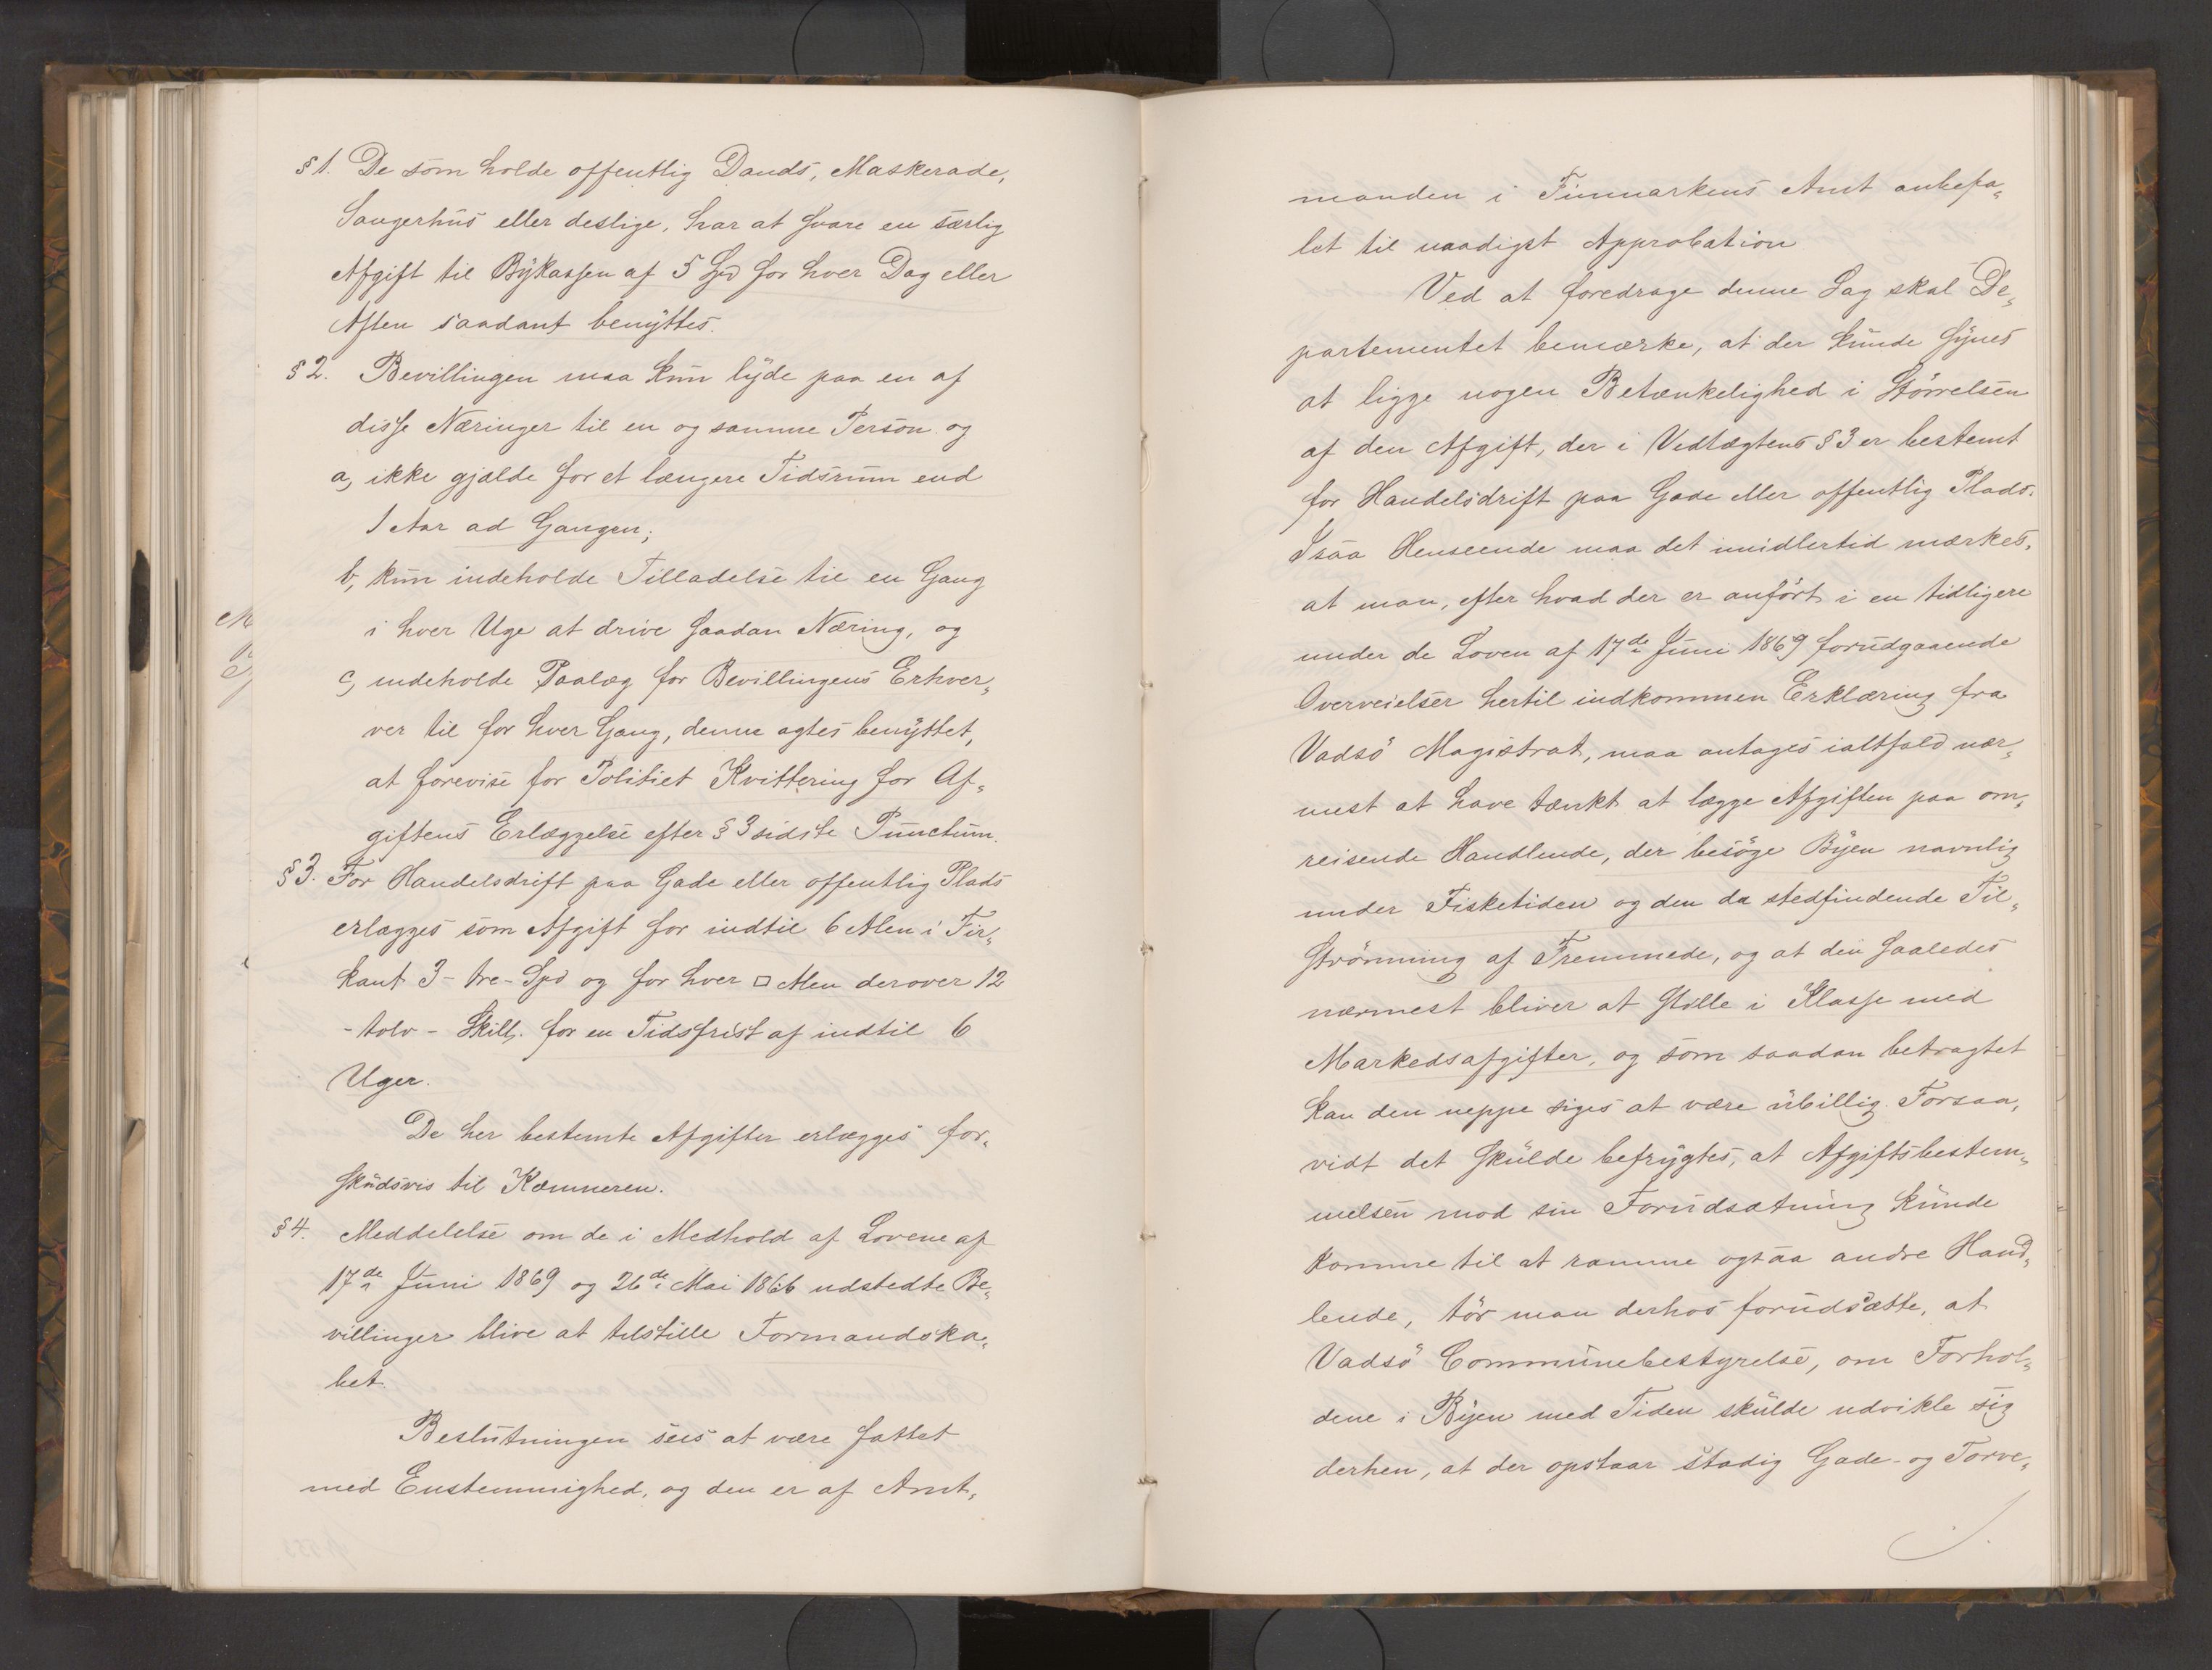 § 1. De som holde offentlig Dands, Maskerade,
Sangerhus eller deslige, har at svare en særlig
Afgift til Bykassen af 5 Spd for hver Dag eller
Aften saadant benyttes.
§ 2. Bevillingen maa kun lyde paa en af
disse Næringer til en og samme Person og
a, ikke gjælde for et længere Tidsrum end
1 Aar ad Gangen;
b, kun indeholde Tilladelse til en Gang
i hver Uge at drive saadan Næring, og
c, indeholde Paalæg for Bevillingens Erhver„
ver til for hver Gang, denne agtes benyttet,
at forevise for Politiet Kvittering for Af„
giftens Erlæggelse efter § 3 sidste Punctum.
§ 3. For Handelsdrift paa Gade eller offentlig Plads
erlægges som Afgift for indtil 6 Alen i Fir„
kant 3 - tre - Spd og for hver □ Alen derover 12
- tolv - Skill. for en Tidsfrist af indtil 6
Uger.
De her bestemte Afgifter erlægges for„
skudsvis til Kæmneren.
§ 4. Meddelelse om de i Medhold af Lovene af
17de Juni 1869 og 26de Mai 1866 udstedte Be„
villinger blive at tilstille Formandska„
bet.
Beslutningen sees at være fattet
med Enstemmighed, og den er af Amt„
manden i Finmarkens Amt anbefa„
let til naadigst Approbation
Ved at foredrage denne Sag skal De„
partementet bemærke, at der kunde synes
at ligge nogen Betænkelighed i Størrelsen
af den Afgift, der i Vedtægtens § 3 er bestemt
for Handelsdrift paa Gade eller offentlig Plads.
I saa Henseende maa det imidlertid mærkes,
at man, efter hvad der er anført i en tidligere
under de Loven af 17de Juni 1869 forudgaaende
Overveielser hertil indkommen Erklæring fra
Vadsö Magistrat, maa antages ialtfald nær„
mest at have tænkt at lægge Afgiften paa om„
reisende Handlende, der besøge Byen navnlig
under Fisketiden og den da stedfindende Til„
strömning af Fremmede, og at den saaledes
nærmest bliver at stille i Klasse med
Markedsafgifter, og som saadan betragtet
kan den neppe siges at være ubillig. Forsaa„
vidt det skulde befrygtes, at Afgiftsbestem„
melsen mod sin Forudsætning kunde
komme til at ramme ogsaa andre Hand„
lende, tør man derhos forudsætte, at
Vadsö Communebestyrelse, om Forhol„
dene i Byen med Tiden skulde udvikle sig
derhen, at der opstaar stadig Gade- og Torve„